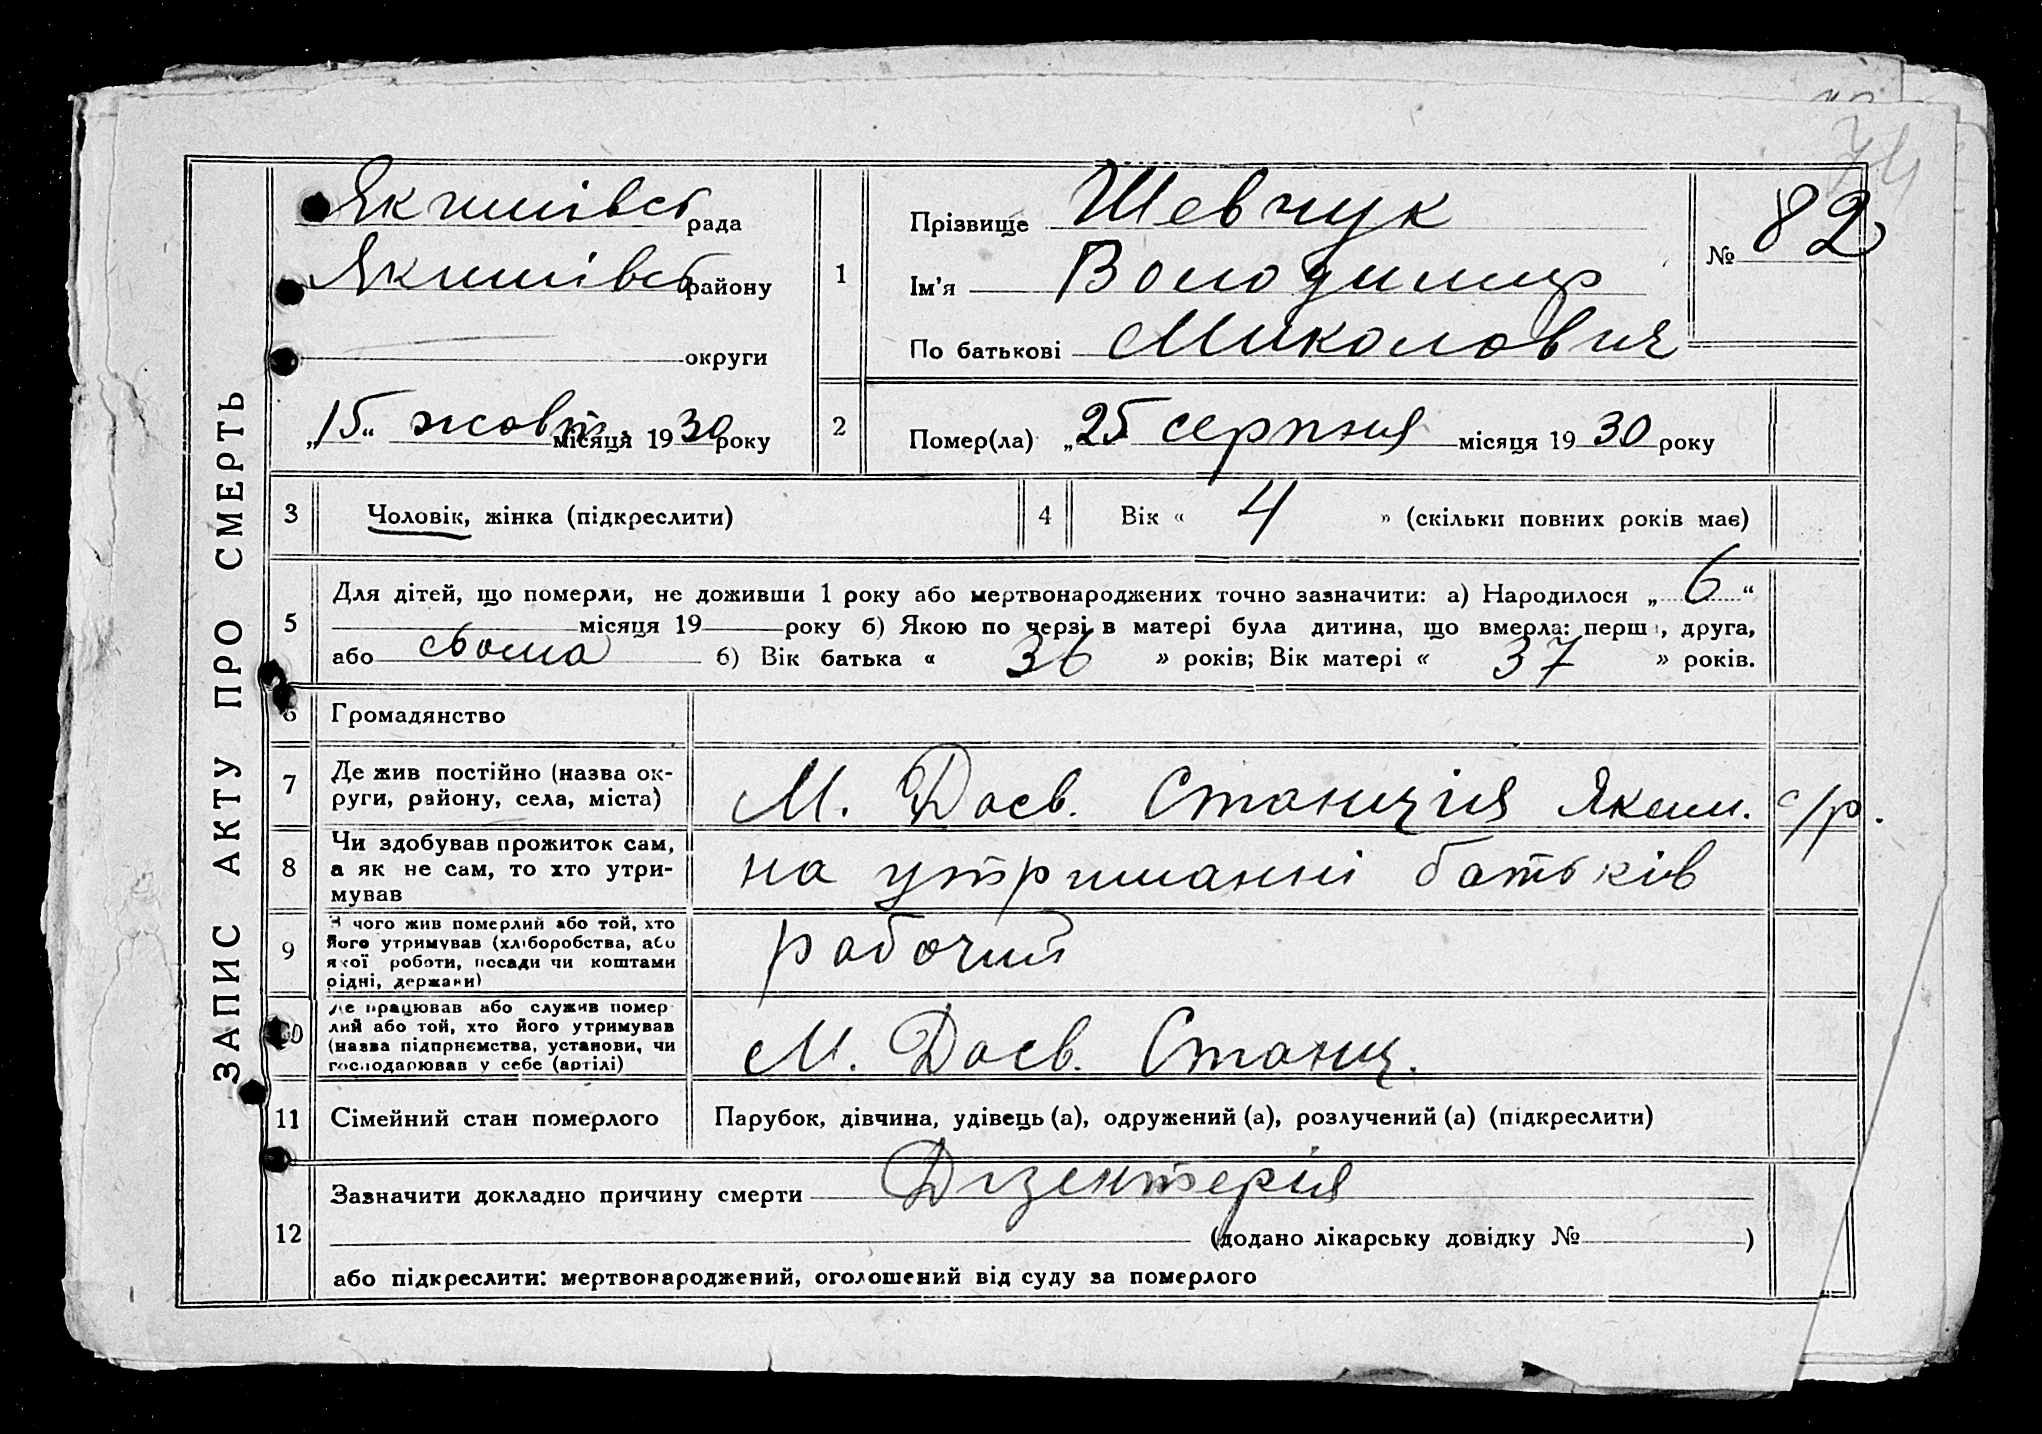 ЗАПИС АКТУ ПРО СМЕРТЬ
74
Якимівськ рада
Якимівськ району
округи
„15“ жовт. місяця 1930 року
1
Прізвище Шевчук
Ім'я Володимир
По батькові Миколович
№ 82
2
Помер(ла) „25 серпня місяця 1930 року
3 Чоловік, жінка (підкреслити)
4 Вік « 4 » (скільки повних років має)
5 Для дітей, що померли, не доживши 1 року або мертвонароджених точно зазначити: а) Народилося „ 6 “
місяця 19 року б) Якою по черзі в матері була дитина, що вмерла: перш, друга,
або сьома б) Вік батька « 36 » років; Вік матері « 37 » років.
6 Громадянство
7 Де жив постійно (назва ок-
руги, району, села, міста) М. Досв. Станція Яким. с/р.
8 Чи здобував прожиток сам,
а як не сам, то хто утри-
мував на утриманні батьків
9 З чого жив померлий або той, хто
його утримував (хліборобства, або
якої роботи, посади чи коштами
рідні, держави) рабочий
10 Де працював або служив помер
лий або той, хто його утримував
(назва підприємства, установи, чи
господарював у себе (артілі) М. Досв. Станц.
11 Сімейний стан померлого Парубок, дівчина, удівець (а), одружений (а), розлучений (а) (підкреслити)
12 Зазначити докладно причину смерти Дізентерія
(додано лікарську довідку № )
або підкреслити: мертвонароджений, оголошений від суду за померлого